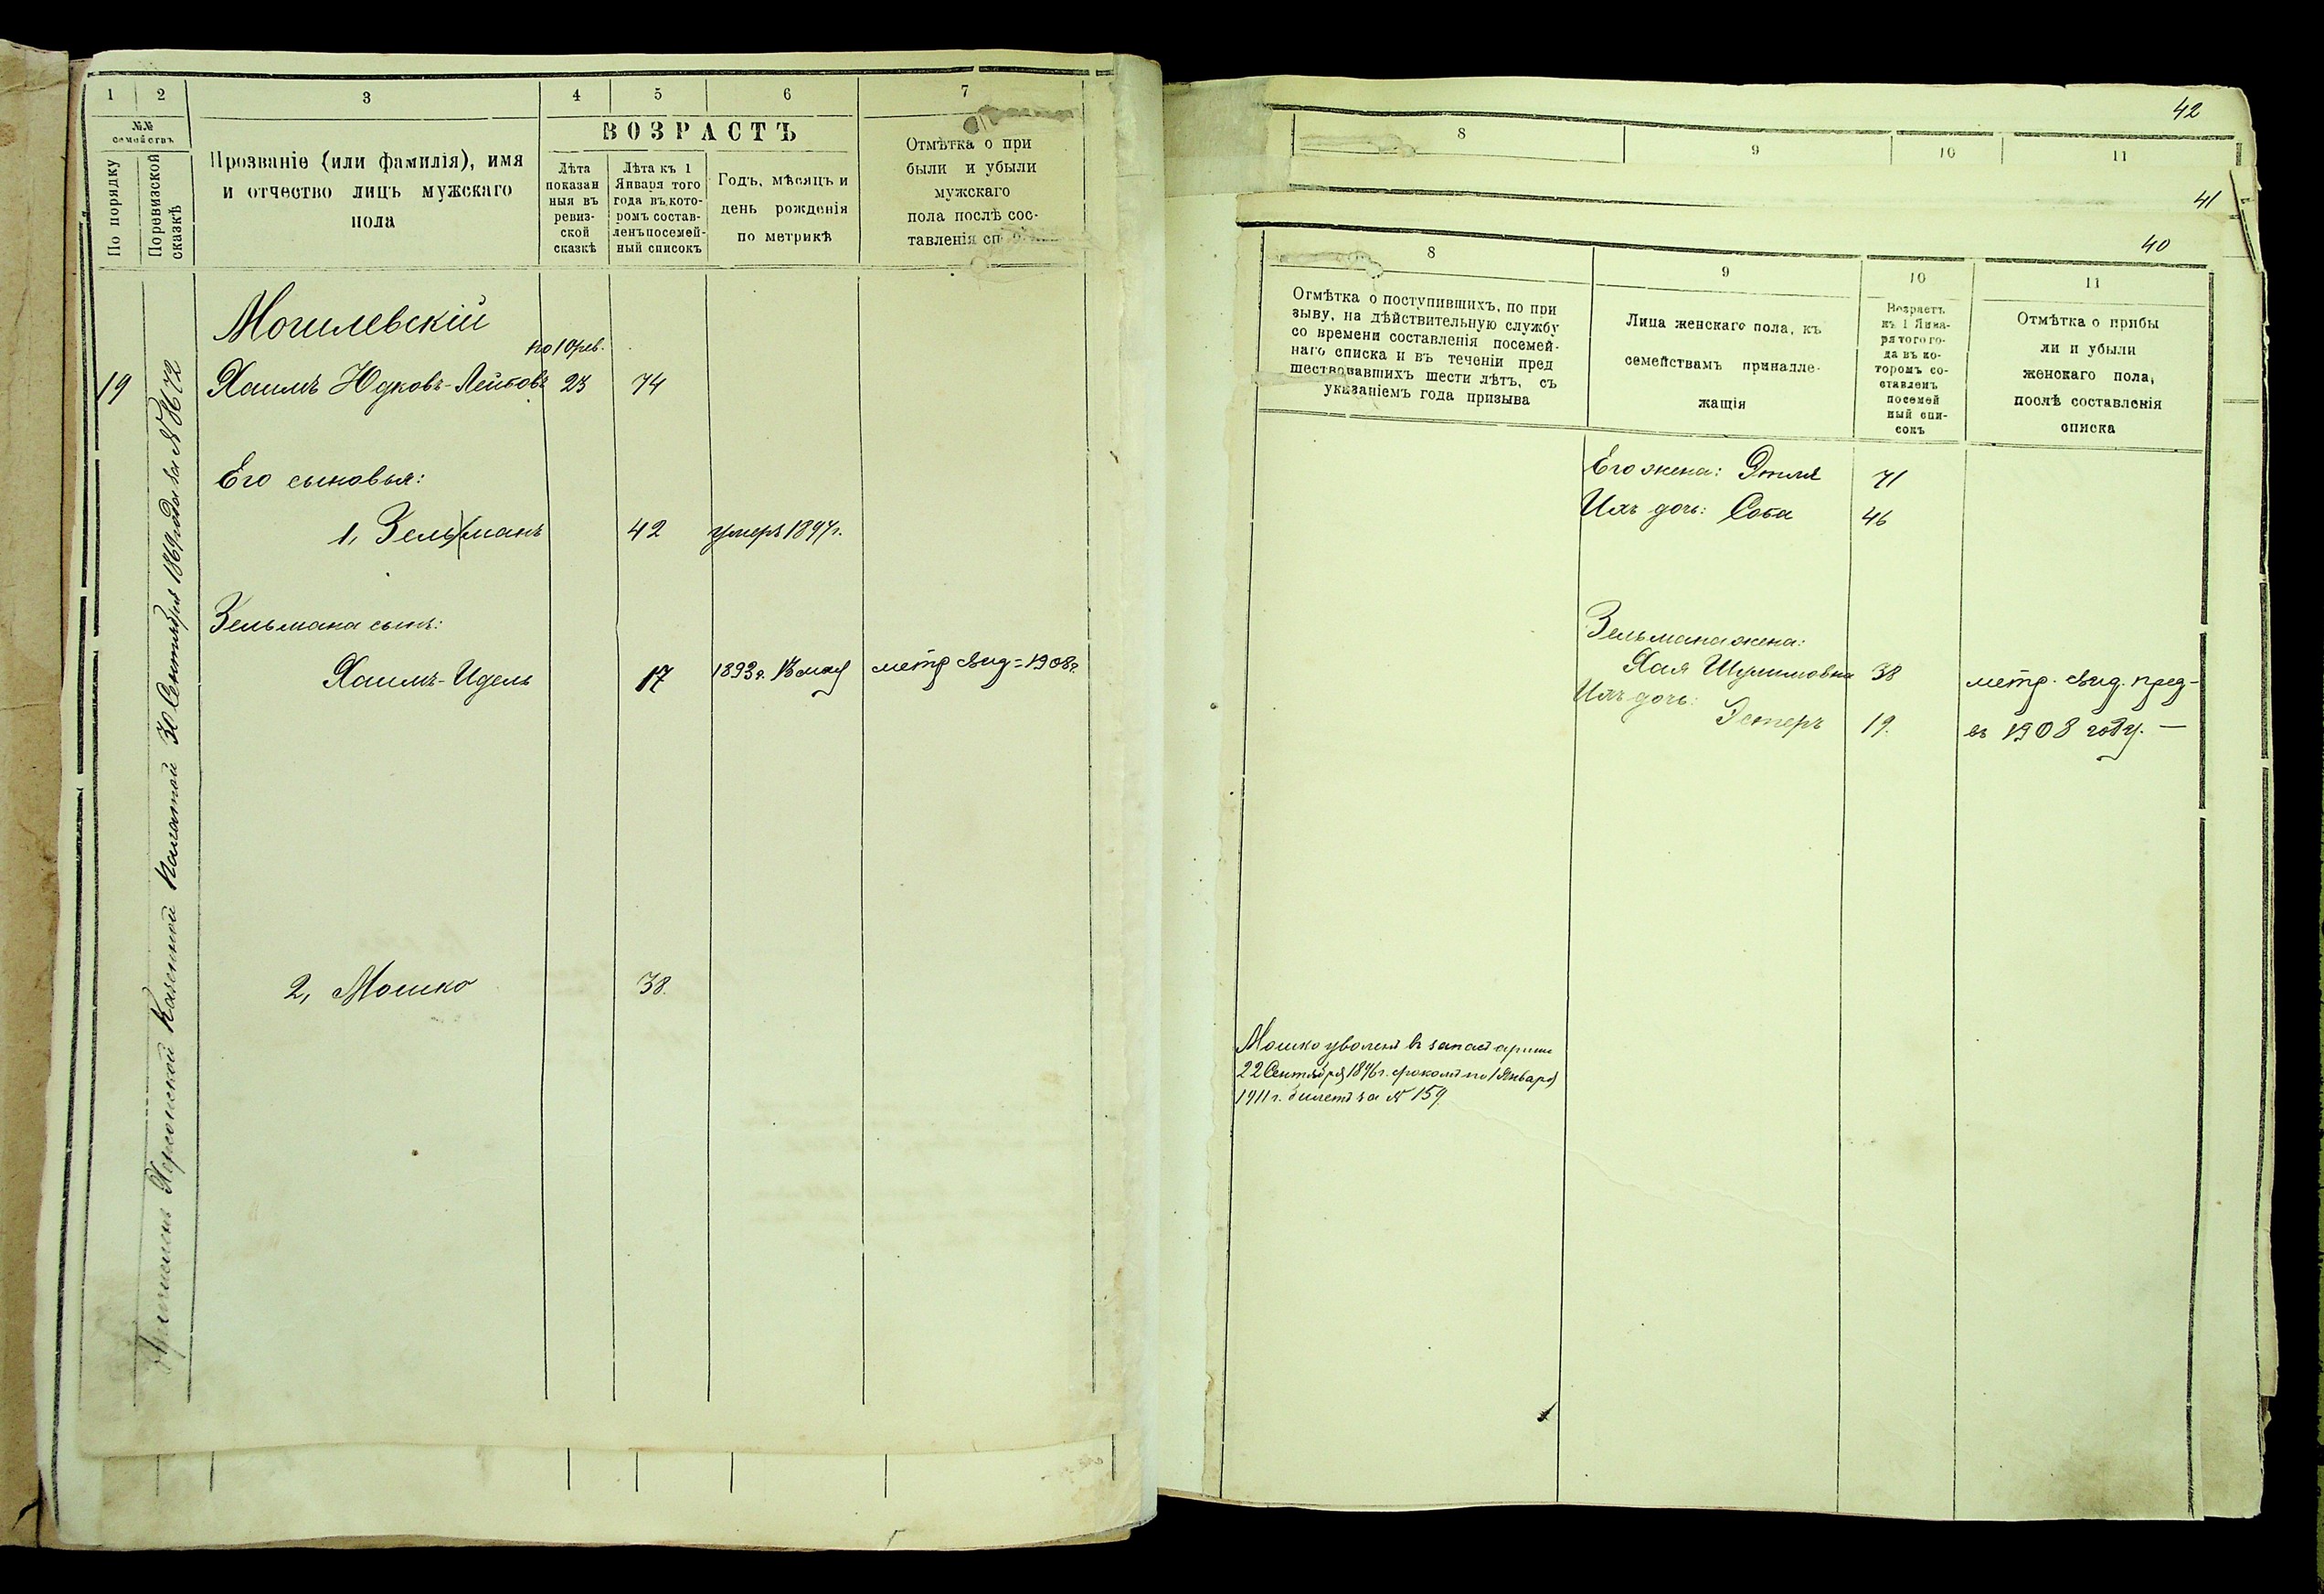 1 2 3 4 5 6 7
№№ семействъ
По порядку
Поревизской сказкѣ
Прозваніе (или фамилія), имя
и отчество лицъ мужскаго
пола
ВОЗРАСТЪ
Лѣта
показан
ныя въ
ревиз-
ской
сказкѣ
Лѣта къ 1
Января того
года въ кото-
ромъ состав-
ленъ посемей-
ный списокъ
Годъ, мѣсяцъ и
день рожденія
по метрикѣ
Отмѣтка о при
были и убыли
мужскаго
пола послѣ сос-
тавленія сп
Могилевскій
по 10 рев.
19 Хаимъ Юдковъ-Лейбовъ 23 74
Его сыновья:
1, Зельманъ 42 умеръ 1897г.
Зельмана сынъ:
Хаимъ-Идель 17 1893г. 13 мая метр свид = 1908г.
2, Мошко 38.
Приписанъ Херсонской Казенной Палатой 30 Сентября 1869 года за №
42
8 9 10 11
41
40
8 9 10 11
Отмѣтка о поступившихъ, по при
зыву, на дѣйствительную службу
со времени составленія посемей-
наго списка и въ теченіи пред
шествовавшихъ шести лѣтъ, съ
указаніемъ года призыва
Лица женскаго пола, къ
семействамъ принадле-
жащія
Возрастъ
къ 1 Янва-
ря того го-
да въ ко-
торомъ со-
ставленъ
посемей
ный спи-
сокъ
Отмѣтка о прибы
ли и убыли
женскаго пола,
послѣ составленія
списка
Его жена: Этля 71
Ихъ дочь: Соба 46
Зельмана жена:
Хая Шулимовна 38 метр. свид. пред-
Ихъ дочь:
Эстеръ 19. въ 1908 году. —
Мошко уволенъ въ запасъ арміи
22 Сентября 1896г. срокомъ по 1 Января
1911 г. билетъ за № 159.